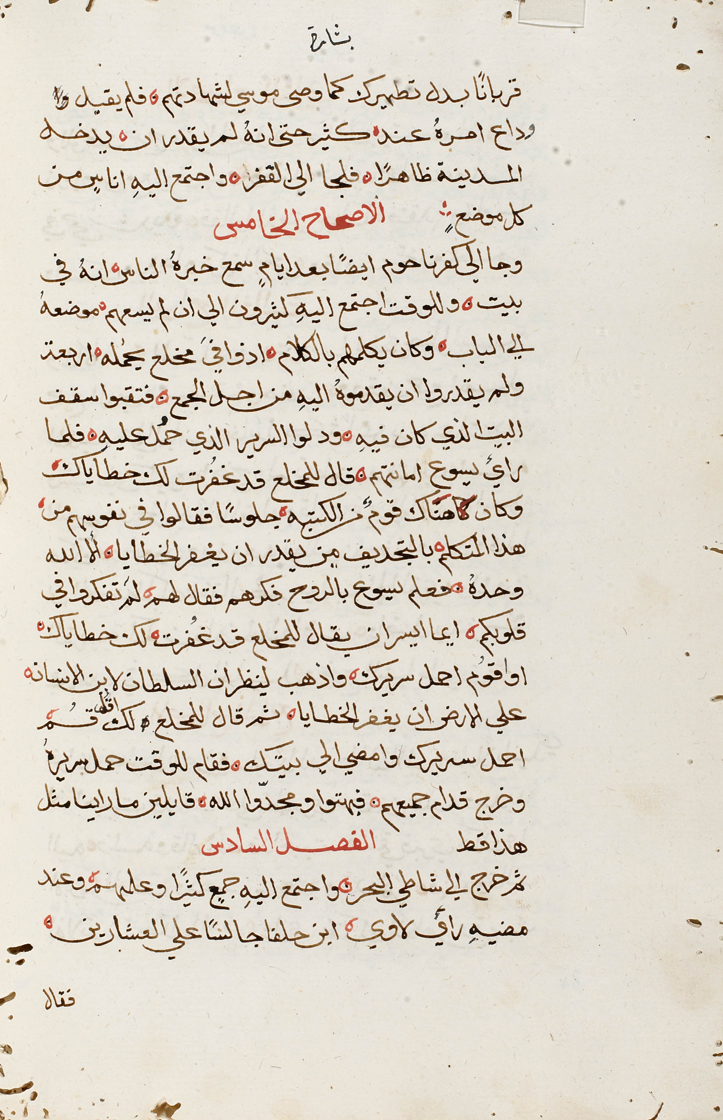 بشارة
قربانًا بدل تطهيرك كما وصي موسي لشهادتهم فلم يقبل
وداع امره عند كثير حتى انهُ لم يقدر ان يدخل
المدينة ظاهرًا فلجا الي القفر واجتمع اليهِ اناس من
كل موضع الاصحاح الخامس
وجا الي كفرناحوم ايضًا بعد ايامٍ سمع خبرهُ الناس انهُ في
بيت وللوقت اجتمع اليهِ كثيرون الي ان لم يسعهم موضعهُ
الي الباب وكان يكلمهم بالكلام اذوافيَ مخلع يحمله اربعة
ولم يقدروا ان يقدموهُ اليهِ من اجل الجمع فتقبوا سقف
البيت الذي كان فيهِ ودلوا السرير الذي حُمل عليهِ فلما
راي يسوع امانتهم قال للمخلع قد غفُرت لك خطاياك
وكان هناك قومٌ من الكتبه جلوسًا فقالوا في نفوسهم من
هذا المتكلم بالتجديف من يقدر ان يغفر الخطايا الا الله
وحدهُ فعلم يسوع بالروح فكرهم فقال لهم لمَ تفكروا في
قلوبكم ايما ايسر ان يقال للمخلع قد غفُرت لك خطاياك
او اقوُم احمل سريرك واذهب لينظر ان السلطان لابن الانسان
علي الارض ان يغفر الخطايا ثم قال للمخلع لك اقول قُم
احمل سريرك وامضي الي بيتك فقام للوقت حمل سريرهُ
وخرج قدام جميعهم فبهتوا ومجدّوا الله قايلين ما راينا مثل
هذا قط الفصل السادس
ثم خرج الي شاطي البحر واجتمع اليهِ جمع كثيرًا وعلمهم وعند
مضيهِ راي لاوي ابن حلفا جالسًا علي العشارين
فقال